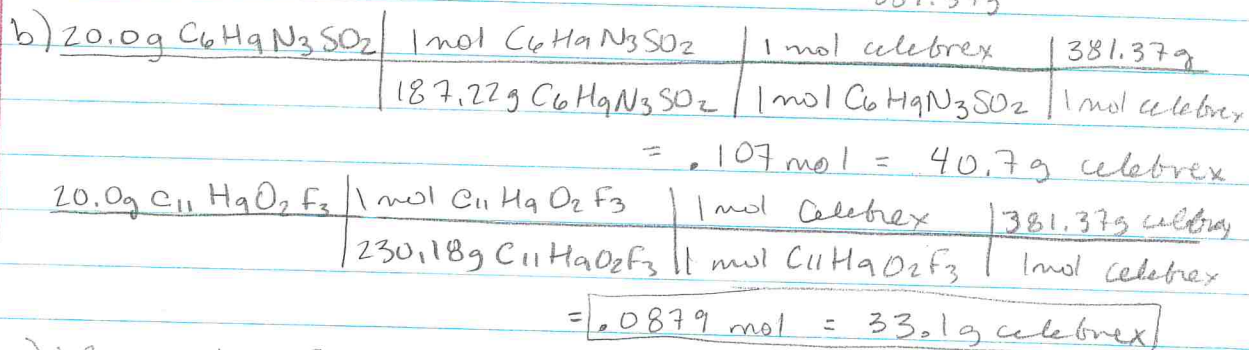 b) 20.0g C6H9N3SO2 | 1 mol C6H9N3SO2 | 1 mol celebrex | 381.37g
187.22g C6H9N3SO2 | 1 mol C6H9N3SO2 | 1 mol celebrex
= .107 mol = 40.7g celebrex
20.0g C11H9O2F3 | 1 mol C11H9O2F3 | 1 mol Celebrex | 381.37g celebrex
230.18g C11H9O2F3 | 1 mol C11H9O2F3 | 1mol celebrex
= .0879 mol = 33.1g celebrex